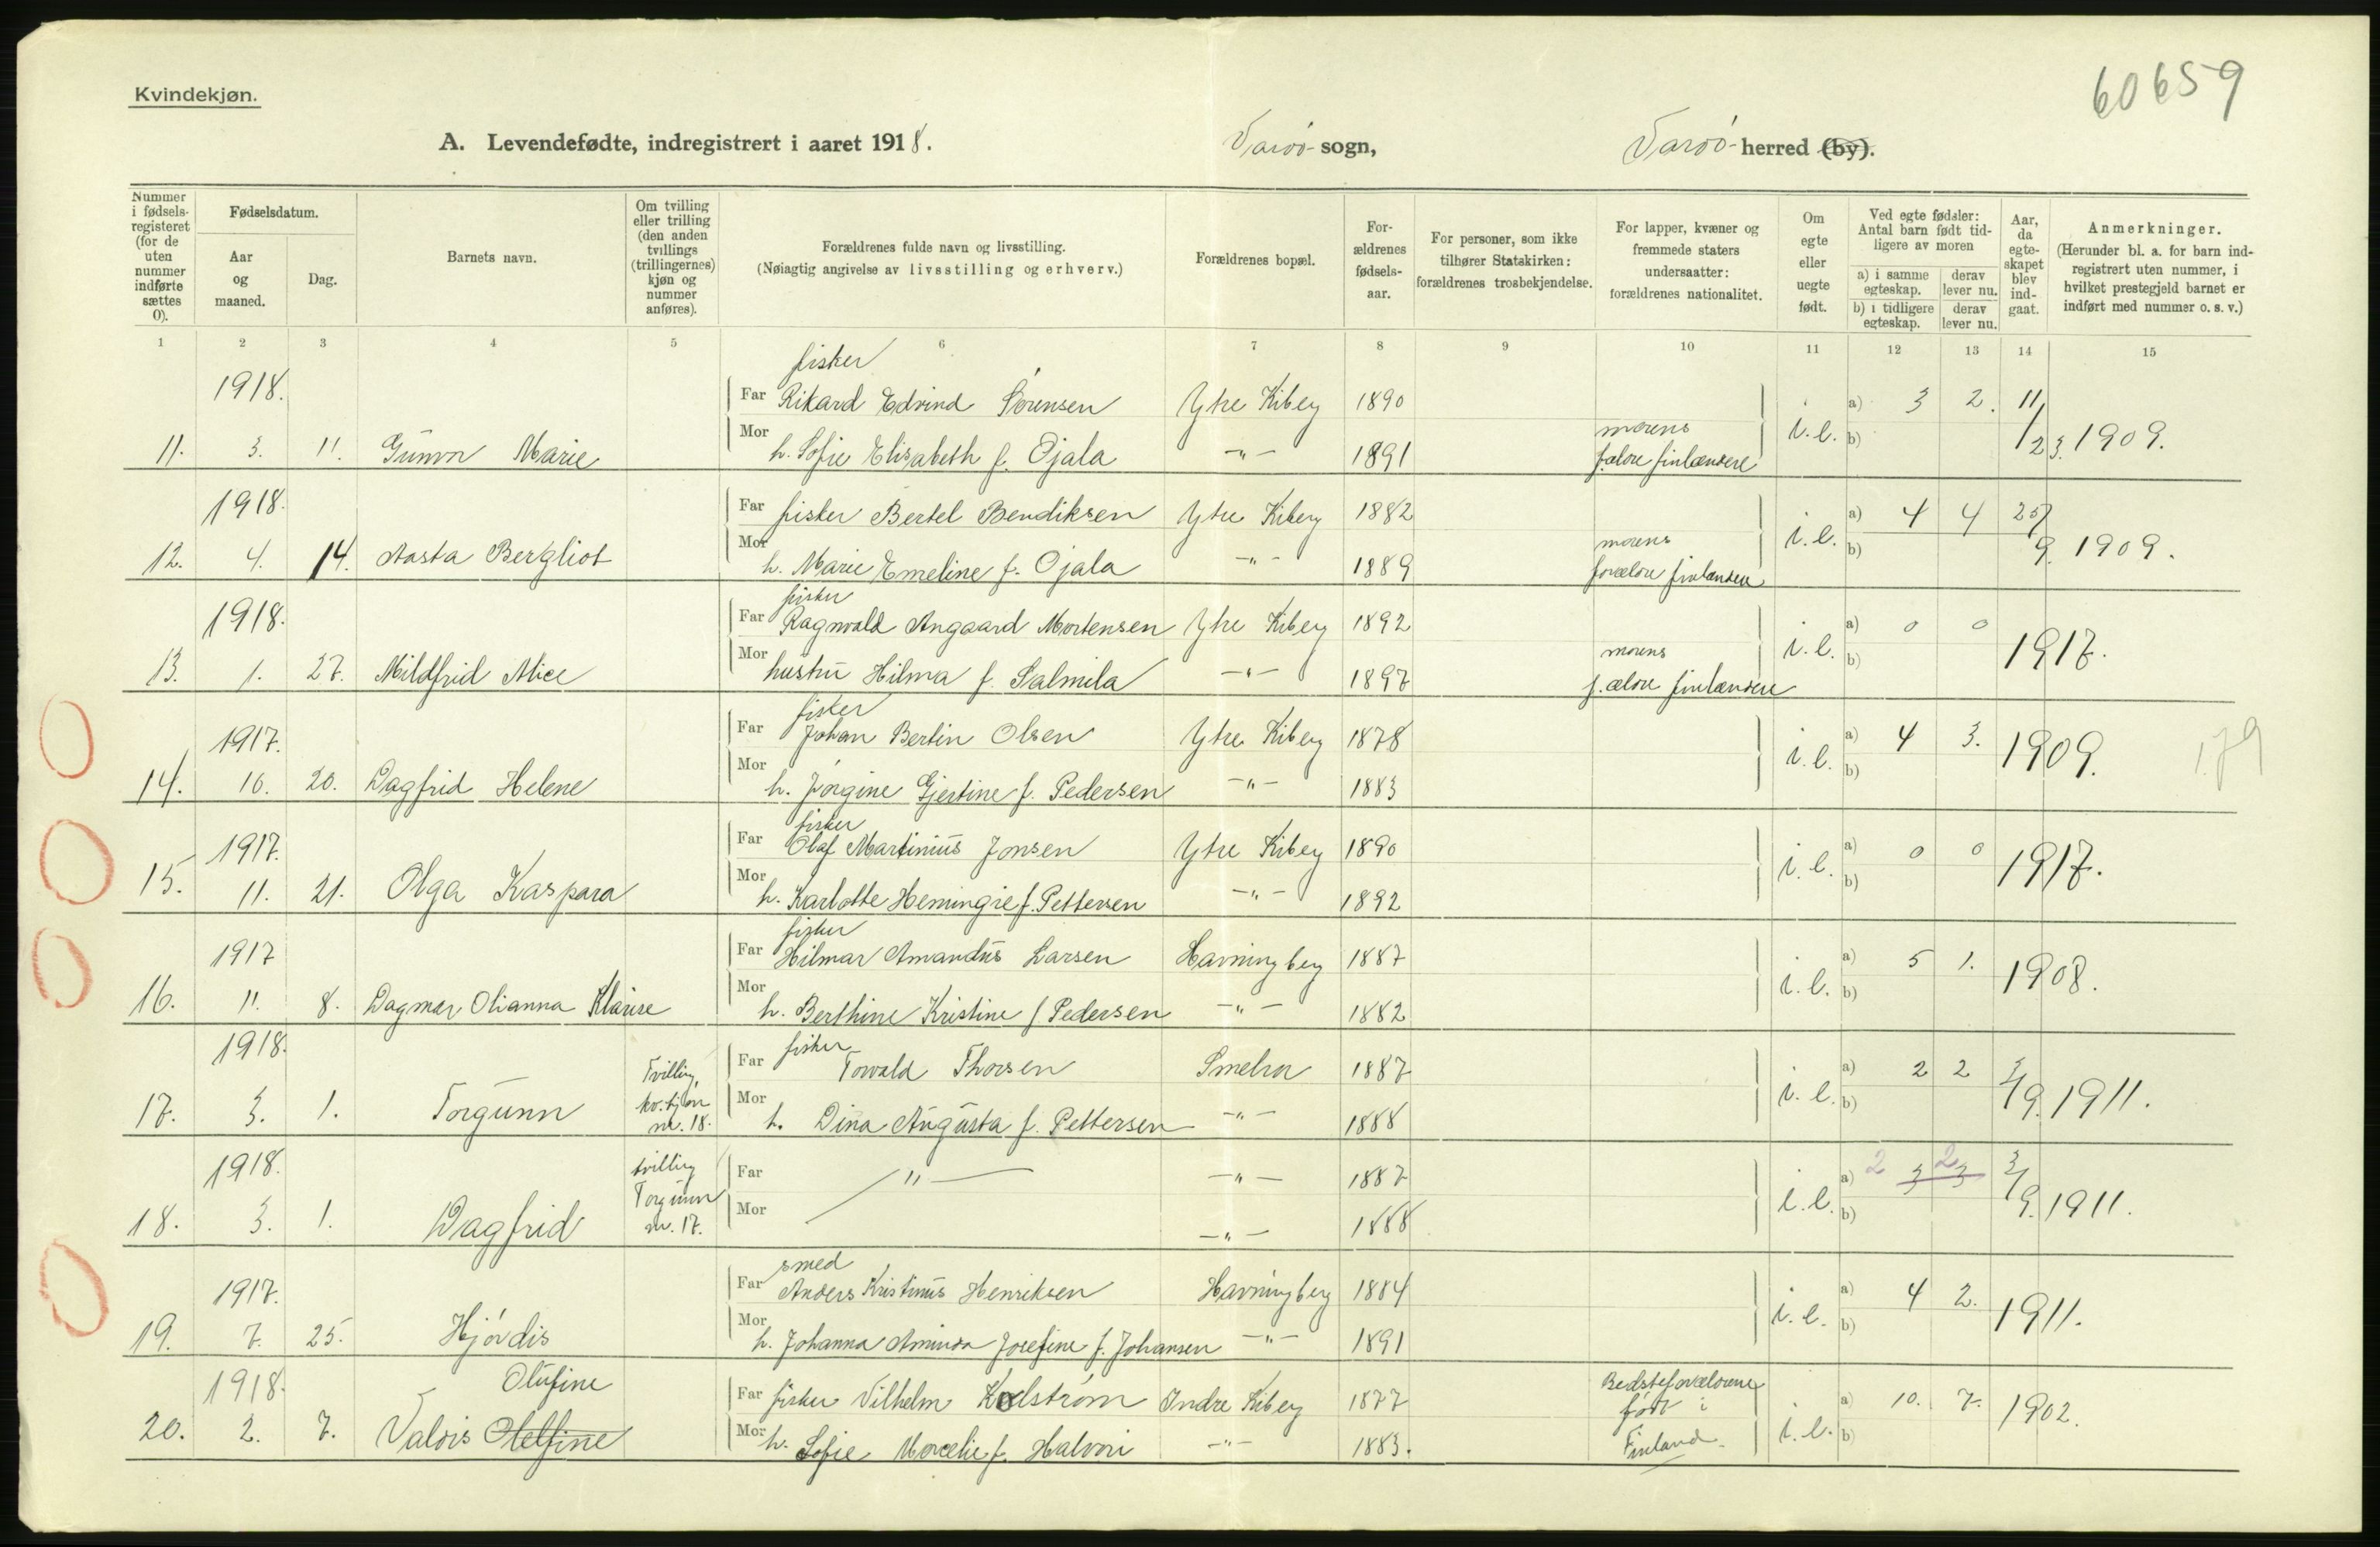 60659
Kvindekjøn.
A. Levendefødte, indregistrert i aaret 1918. Vardö sogn, Vardö herred (by).
Nummer i fødselsregisteret (for de uten nummer indførte sættes 0).
Fødselsdatum.
Aar og maaned.
Dag.
Barnets navn.
Om tvilling eller trilling (den anden tvillings (trillingernes) kjøn og nummer anføres).
Forældrenes fulde navn og livsstilling.
(Nøiagtig angivelse av livsstilling og erhverv.)
Forældrenes bopæl.
Forældrenes fødselsaar.
For personer, som ikke tilhører Statskirken: forældrenes trosbekjendelse.
For lapper, kvæner og fremmede staters undersaatter: forældrenes nationalitet.
Om egte eller uegte født.
Ved egte fødsler: Antal barn født tidligere av moren
a) i samme egteskap. derav lever nu.
b) i tidligere egteskap. derav lever nu.
Aar, da egteskapet blev indgaat.
Anmerkninger.
(Herunder bl. a. for barn indregistrert uten nummer, i hvilket prestegjeld barnet er indført med nummer o. s. v.)
1 2 3 4 5 6 7 8 9 10 11 12 13 14 15
fisker
1918. Far Rikard Edvind Sörensen Ytre Kiberg 1890 a) 3 2. 11/
11. 3. 11. Gunvor Marie Mor h. Sofie Elisabeth f. Ojala -"- 1891 morens f.ældre finlændere i.e. b) 1909.
1918. Far fisker Bertel Bendiksen Ytre Kiberg 1882 a) 4 4 25/
12. 4. 14. Aasta Bergliot Mor h. Marie Emeline f. Ojala -"- 1889 morens forældre finlændere i.e. b) 9. 1909.
fisker
1918. Far Ragnvald Angaard Mortensen Ytre Kiberg 1892 a) 0 0
13. 1. 27. Mildfrid Alice Mor hustru Hilma f. Salmila -"- 1897 morens f.ældre finlændere i.e. b) 1917.
fisker
1917. Far Johan Bertin Olsen Ytre Kiberg 1878 a) 4 3. 1909.
14. 10. 20. Dagfrid Helene Mor h. Jörgine Gjertine f. Pedersen -"- 1883 i.e. b)
fisker
1917. Far Olaf Martinius Jonsen Ytre Kiberg 1890 a) 0 0 1917.
15. 11. 21. Olga Kaspara Mor h. Karlotte Hemingie f. Pettersen -"- 1892 i.e. b)
fisker
1917 Far Hilmar Amandus Larsen Havningberg 1887 a) 5 1. 1908.
16. 11. 8. Dagmar Olianna Klarise Mor h. Berthine Kristine f. Pedersen -"- 1882 i.e. b)
fisker
1918. Tvilling, Far Torvald Thorsen Smelror 1887 a) 2 2 3/
17. 3. 1. Torgunn kv.kjön nr. 18. Mor h. Dina Augusta f. Pettersen -"- 1888 i.e. b) 9. 1911.
1918. tvilling Far -"- -"- 1887 a) 2 3 2 3 3/
18. 3. 1. Dagfrid Torgunn nr. 17. Mor -"- 1888 i.e. b) 9. 1911.
smed
1917. Far Anders Kristinus Henriksen Havningberg 1884 a) 4 2. 1911.
19. 7. 25. Hjördis Mor h. Johanna Aminda Josefine f. Johansen -"- 1891 i.e. b)
Olufine
1918. Far fisker Vilhelm Kolström Indre Kiberg 1877 Bedsteforældrene a) 10. 7. 1902.
20. 2. 7. Valdis Olelfine Mor h. Sofie f. Halvori -"- 1883. født i Finland i.e. b)